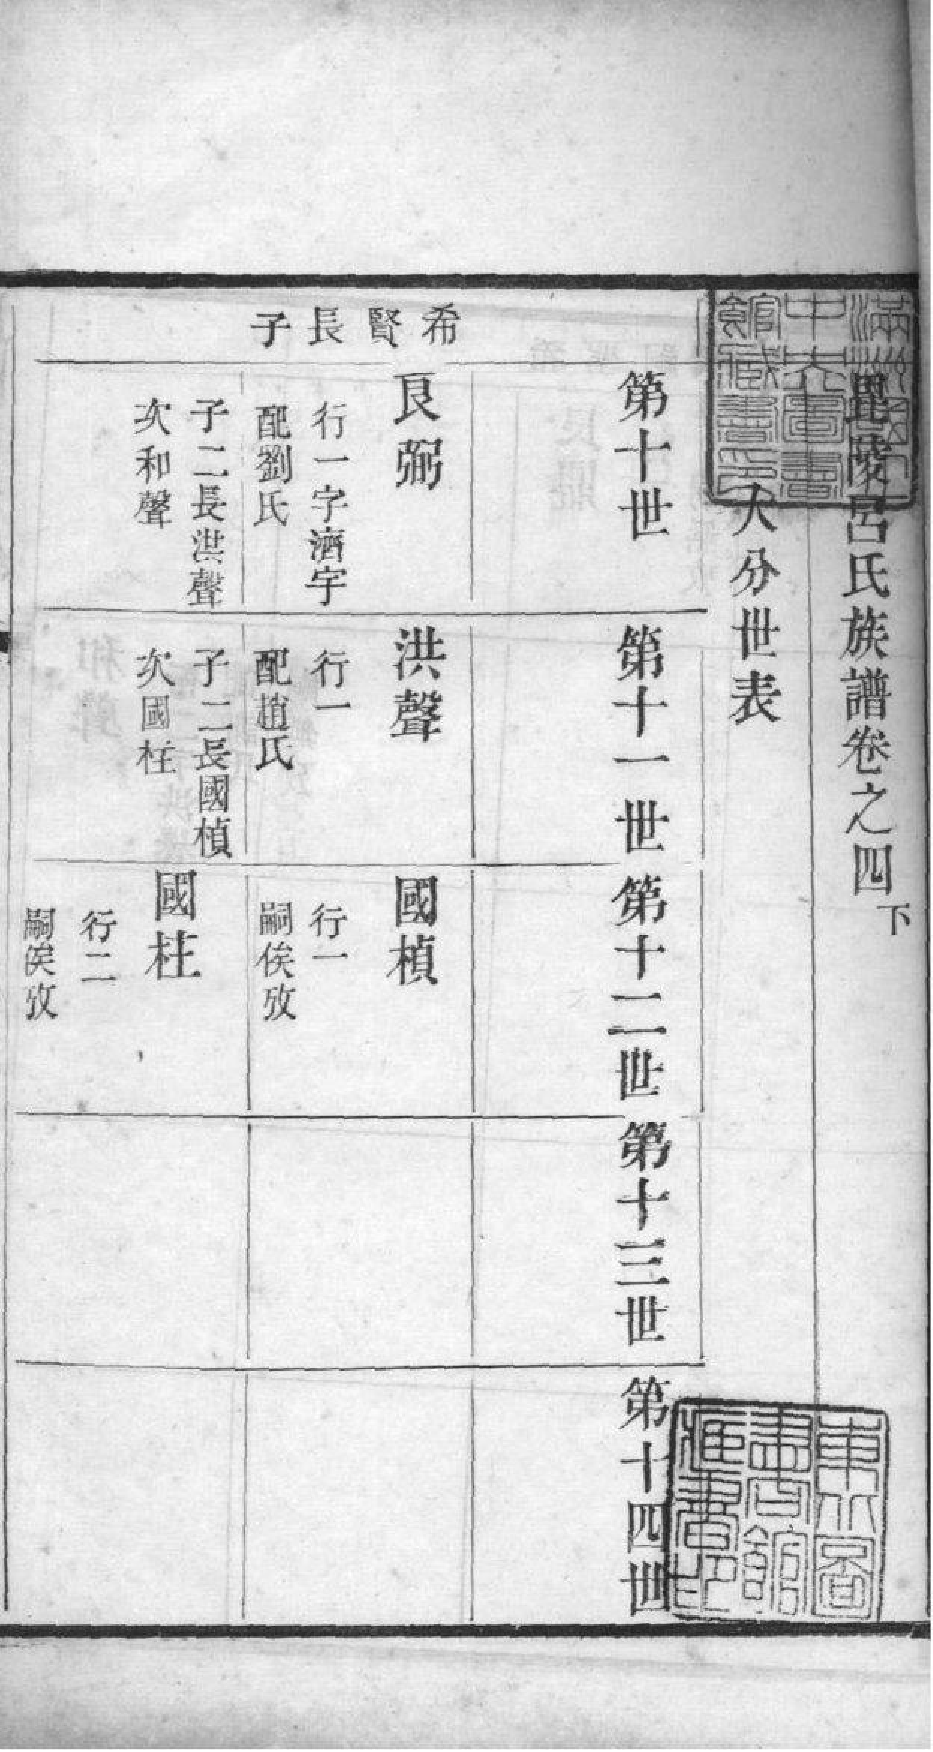 毘陵呂氏族譜卷之四下
大分世表
第十世
第十一世
第十二世
第十三世
第十四世
希賢長子
良弼
行一字濟宇
配劉氏
子二長洪聲
次和聲
洪聲
行一
配趙氏
子二長國楨
次國柱
國楨
行一
嗣俟攷
國柱
行二
嗣俟攷
東北圖
書館
藏書印